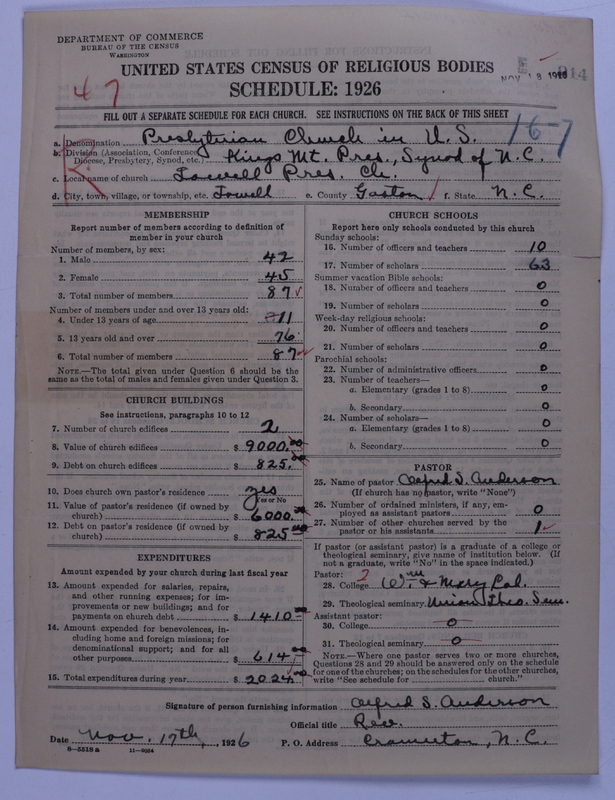 DEPARTMENT OF COMMERCE
BUREAU OF THE CENSUS
WASHINGTON
UNITED STATES CENSUS OF RELIGIOUS BODIES
SCHEDULE: 1926
NOV 18 1926
47
FILL OUT A SEPARATE SCHEDULE FOR EACH CHURCH. SEE INSTRUCTIONS ON THE BACK OF THIS SHEET
16-7
a. Denomination Presbyterian Church in U.S.
b. Division (Association, Conference, Diocese, Presbytery, Synod, etc.) Kings Mt. Pres., Synod of N.C.
c. Local name of church Lowell Pres. Ch.
d. City, town, village, or township, etc. Lowell e. County Gaston f. State N.C.
MEMBERSHIP
Report number of members according to definition of
member in your church
Number of members, by sex:
1. Male 42
2. Female 45
3. Total number of members 87
Number of members under and over 13 years old:
4. Under 13 years of age 11
5. 13 years old and over 76
6. Total number of members 87
NOTE.—The total given under Question 6 should be
same as the total of males and females given under Question 3.
CHURCH BUILDINGS
See instructions, paragraphs 10 to 12
7. Number of church edifices 2
8. Value of church edifices $ 9000.00
9. Debt on church edifices $ 825.00
10. Does church own pastor's residence yes
Yes or No
11. Value of pastor's residence (if owned by
church) $ 6000.00
12. Debt on pastor's residence (if owned by
church) $ 825.00
EXPENDITURES
Amount expended by your church during last fiscal year
13. Amount expended for salaries, repairs,
and other running expenses; for im-
provements or new buildings; and for
payments on church debt $ 1410.00
14. Amount expended for benevolences, in-
cluding home and foreign missions; for
denominational support; and for all
other purposes $ 614.00
15. Total expenditures during year $ 2024.00
CHURCH SCHOOLS
Report here only schools conducted by this church
Sunday schools:
16. Number of officers and teachers 10
17. Number of scholars 63
Summer vacation Bible schools:
18. Number of officers and teachers 0
19. Number of scholars 0
Week-day religious schools:
20. Number of officers and teachers 0
21. Number of scholars 0
Parochial schools:
22. Number of administrative officers 0
23. Number of teachers—
a. Elementary (grades 1 to 8) 0
b. Secondary 0
24. Number of scholars—
a. Elementary (grades 1 to 8) 0
b. Secondary 0
PASTOR
25. Name of pastor Alfred S. Anderson
(If church has no pastor, write "None")
26. Number of ordained ministers, if any, em-
ployed as assistant pastors 0
27. Number of other churches served by the
pastor or his assistants 1
If pastor (or assistant pastor) is a graduate of a college or
theological seminary, give name of institution below. (If
not a graduate, write "No" in the space indicated.)
Pastor: 2
28. College Wm & Mary Col.
29. Theological seminary Union Theo. Sem.
Assistant pastor:
30. College 0
31. Theological seminary 0
NOTE.—Where one pastor serves two or more churches,
Questions 28 and 29 should be answered only on the schedule
for one of the churches; on the schedules for the other churches,
write "See schedule for church."
Signature of person furnishing information Alfred S. Anderson
Official title Rev.
Date Nov. 17th, 1926 P. O. Address Cramerton, N.C.
8—5518a 11—9054